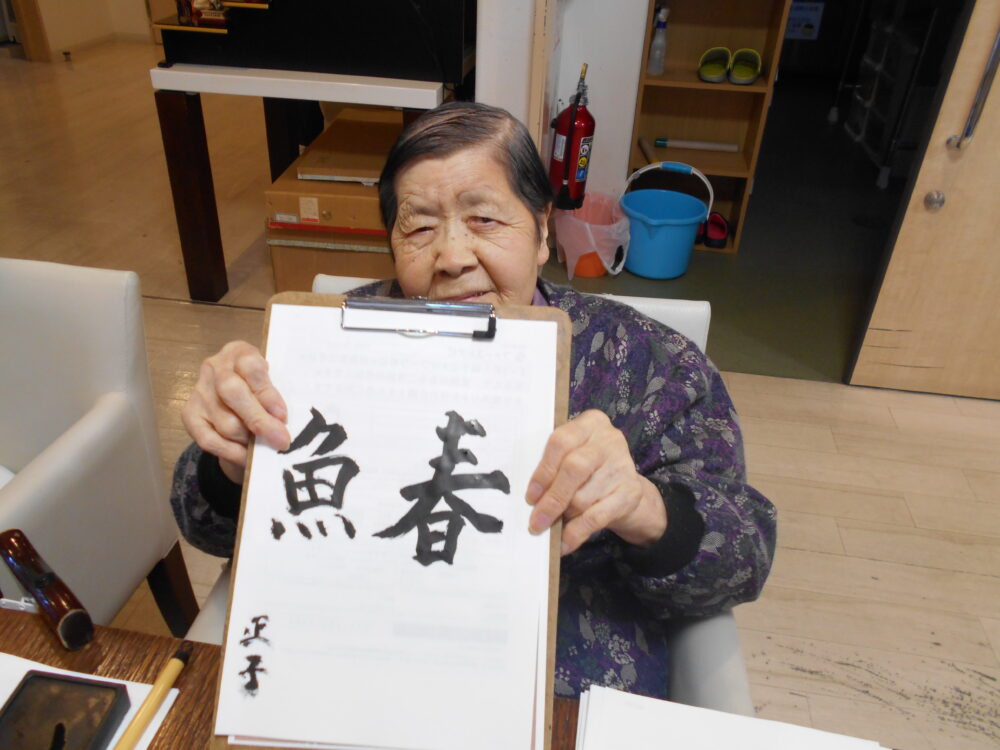 春
魚
正子